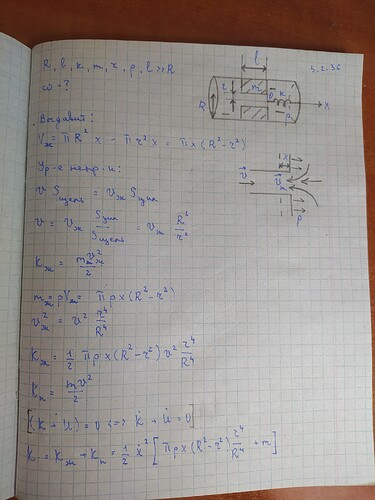 R, l, k, m, r, ρ, l >> R
5.2.36
ω - ?
l
r
m
k
R
x
ρ
Выдавит:
Vж = πR²x - πr²x = πx(R²-r²)
Ур-е непр.и:
v Sщель = vж Sцил
v = vж Sцил/Sщель = vж R²/r²
Kж = mж vж²/2
mж = ρVж = πρx(R²-r²)
vж² = v² r⁴/R⁴
Kж = 1/2 πρx(R²-r²) v² r⁴/R⁴
Kп = mv²/2
[(K + U)˙ = 0 <=> K̇ + U̇ = 0]
K = Kж + Kп = 1/2 ẋ² [πρx(R²-r²) r⁴/R⁴ + m]